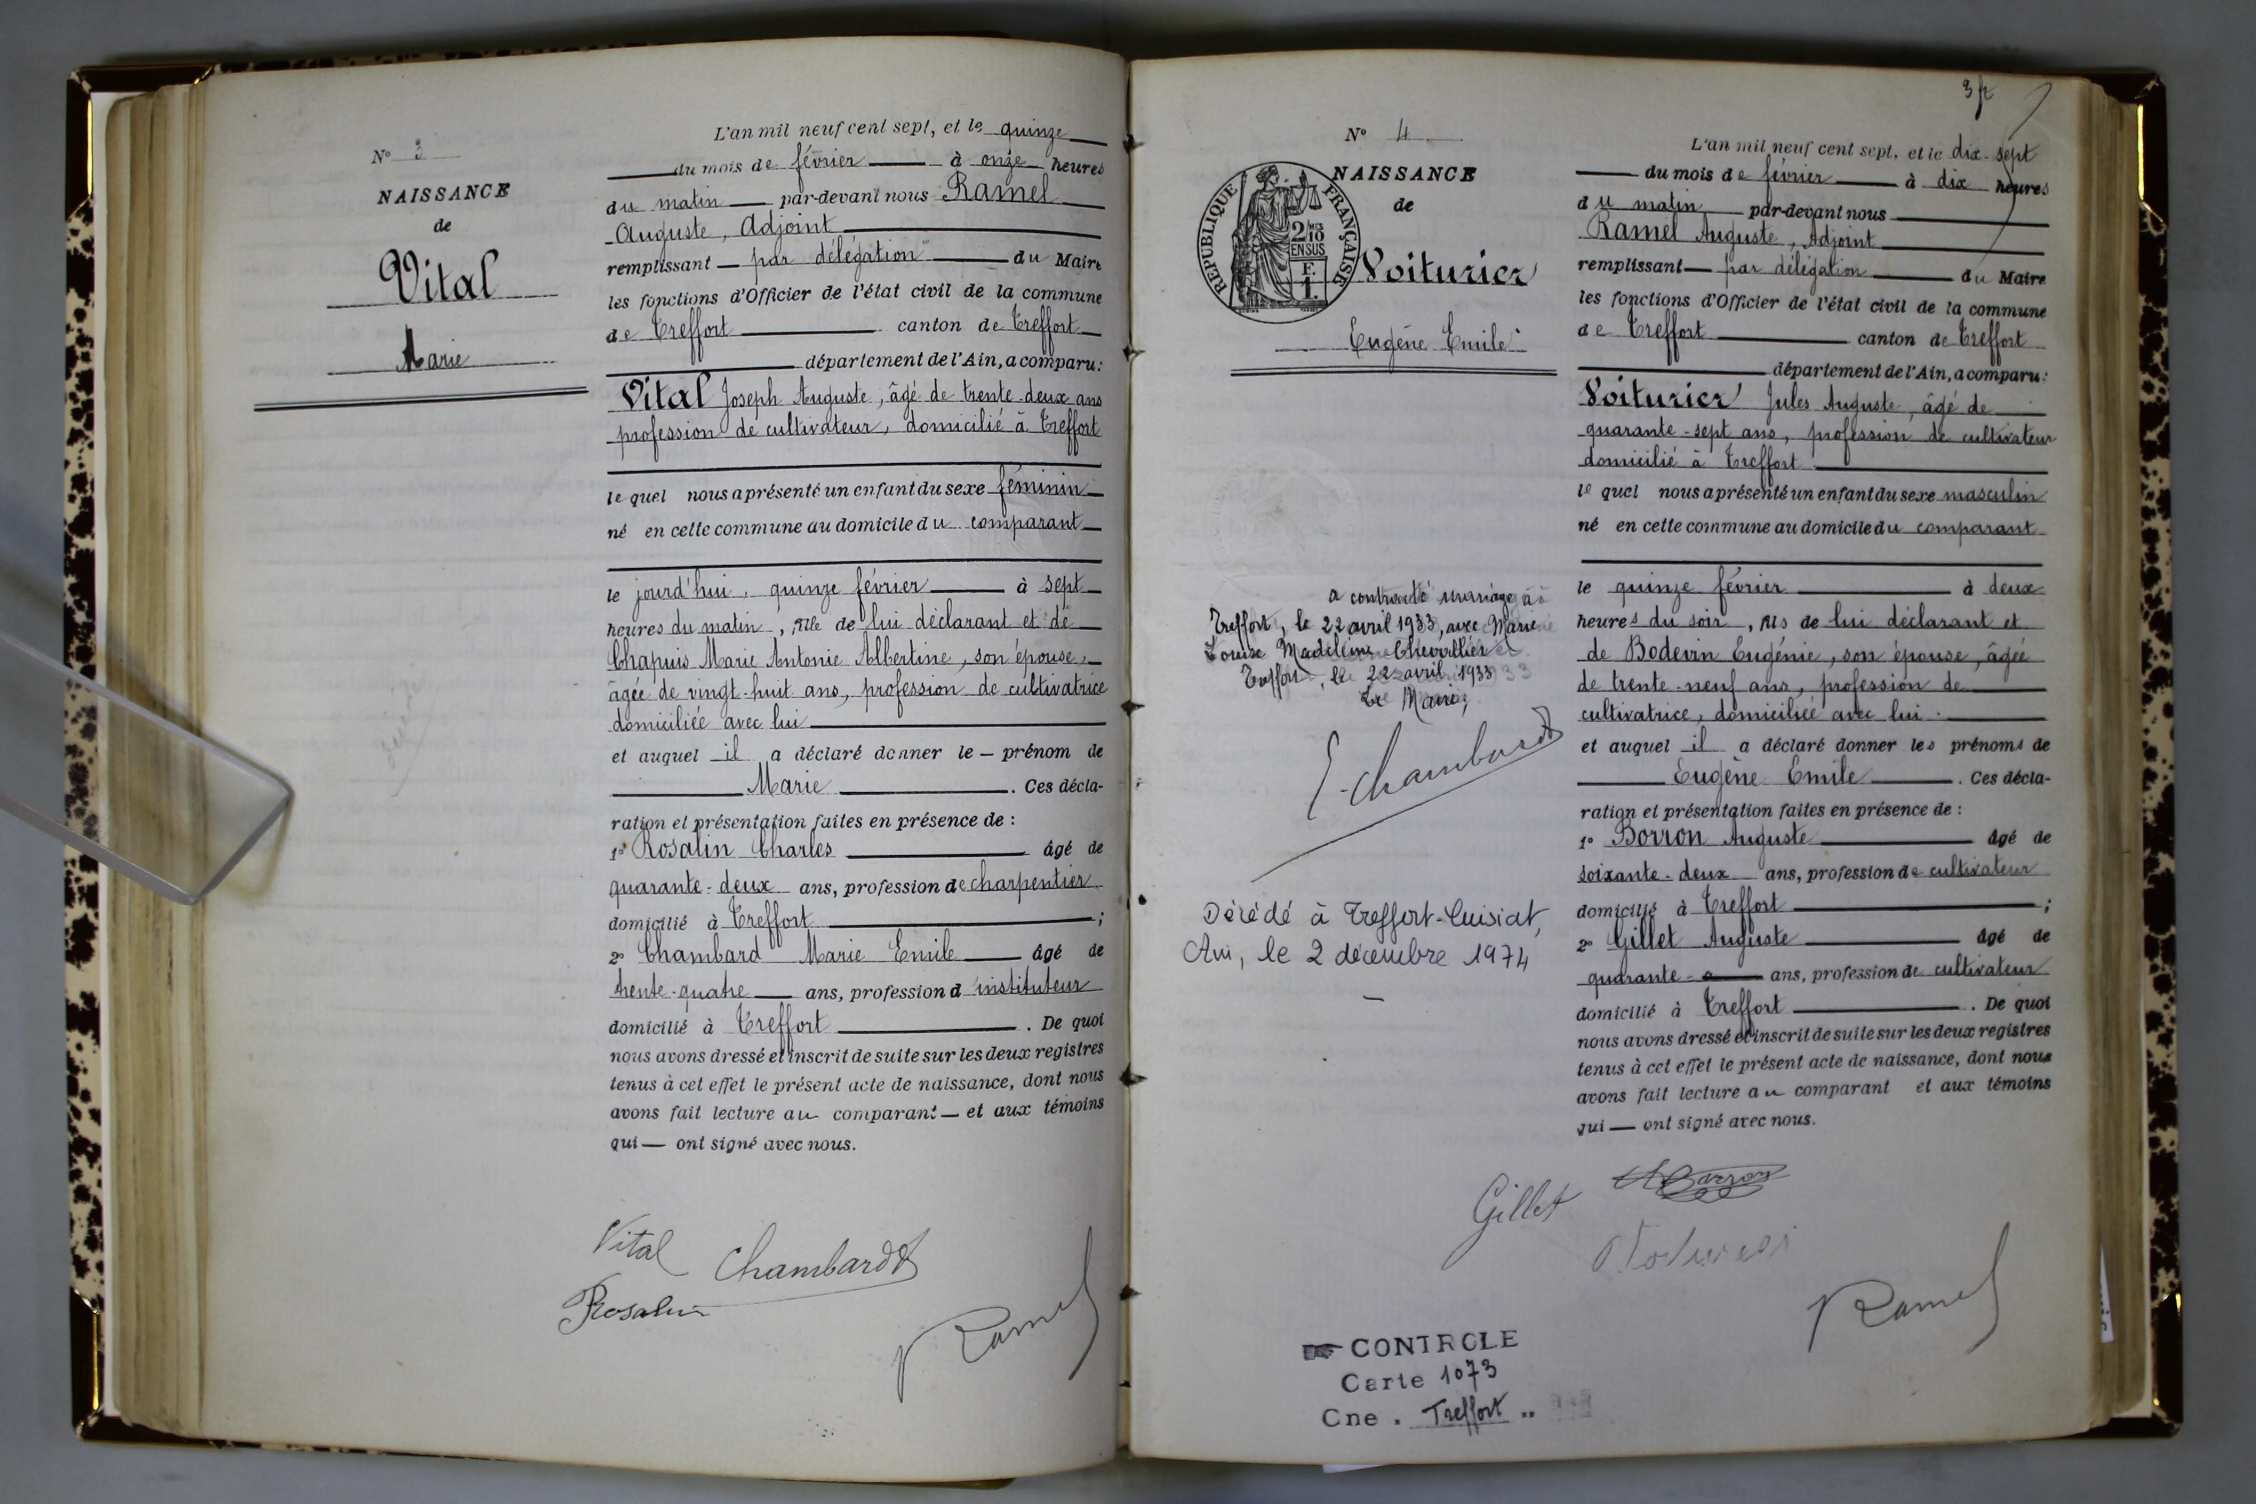 L'an mil neuf cent sept, et le quinze
N° 3
du mois de février à onze heures
NAISSANCE
du matin par-devant nous Ramel
de
Auguste, Adjoint
Vital
remplissant par délégation du Maire
les fonctions d'Officier de l'état civil de la commune
de Treffort canton de Treffort
Marie
département de l'Ain, a comparu:
Vital Joseph Auguste, âgé de trente-deux ans
profession de cultivateur, domicilié à Treffort
lequel nous a présenté un enfant du sexe féminin
né en cette commune au domicile du comparant
le jourd'hui, quinze février à sept
heures du matin, fille de lui déclarant et de
Chapuis Marie Antonie Albertine, son épouse,
âgée de vingt-huit ans, profession de cultivatrice
domiciliée avec lui
et auquel il a déclaré donner le prénom de
Marie. Ces décla-
ration et présentation faites en présence de :
1° Rosalin Charles âgé de
quarante-deux ans, profession de charpentier
domicilié à Treffort ;
2° Chambard Marie Emile âgé de
trente-quatre ans, profession d'instituteur
domicilié à Treffort. De quoi
nous avons dressé et inscrit de suite sur les deux registres
tenus à cet effet le présent acte de naissance, dont nous
avons fait lecture au comparant et aux témoins
qui ont signé avec nous.
Vital Chambard
Rosalin
Ramel
3 f
N° 4
L'an mil neuf cent sept, et le dix-sept
NAISSANCE
du mois de février à dix heures
de
du matin par-devant nous
RÉPUBLIQUE FRANÇAISE
2/10 EN SUS
F. 1.
Ramel Auguste, Adjoint
Voiturier
remplissant par délégation du Maire
les fonctions d'Officier de l'état civil de la commune
Eugène Emile
de Treffort canton de Treffort
département de l'Ain, a comparu:
Voiturier Jules Auguste, âgé de
quarante-sept ans, profession de cultivateur
domicilié à Treffort
lequel nous a présenté un enfant du sexe masculin
né en cette commune au domicile du comparant
le quinze février à deux
heures du soir, fils de lui déclarant et
de Bodevin Eugénie, son épouse, âgée
de trente-neuf ans, profession de
cultivatrice, domiciliée avec lui.
et auquel il a déclaré donner les prénoms de
Eugène Emile. Ces décla-
ration et présentation faites en présence de :
1° Borron Auguste âgé de
soixante-deux ans, profession de cultivateur
domicilié à Treffort ;
2° Gillet Auguste âgé de
quarante ans, profession de cultivateur
domicilié à Treffort. De quoi
nous avons dressé et inscrit de suite sur les deux registres
tenus à cet effet le présent acte de naissance, dont nous
avons fait lecture au comparant et aux témoins
qui ont signé avec nous.
a contracté mariage à
Treffort, le 22 avril 1933, avec Marie
Louise Madeleine Chevillier
Treffort, le 22 avril 1933
Le Maire,
E. Chambard
Décédé à Treffort-Cuisiat,
Ain, le 2 décembre 1974
Gillet
Voiturier
Ramel
CONTROLE
Carte 1073
Cne. Treffort